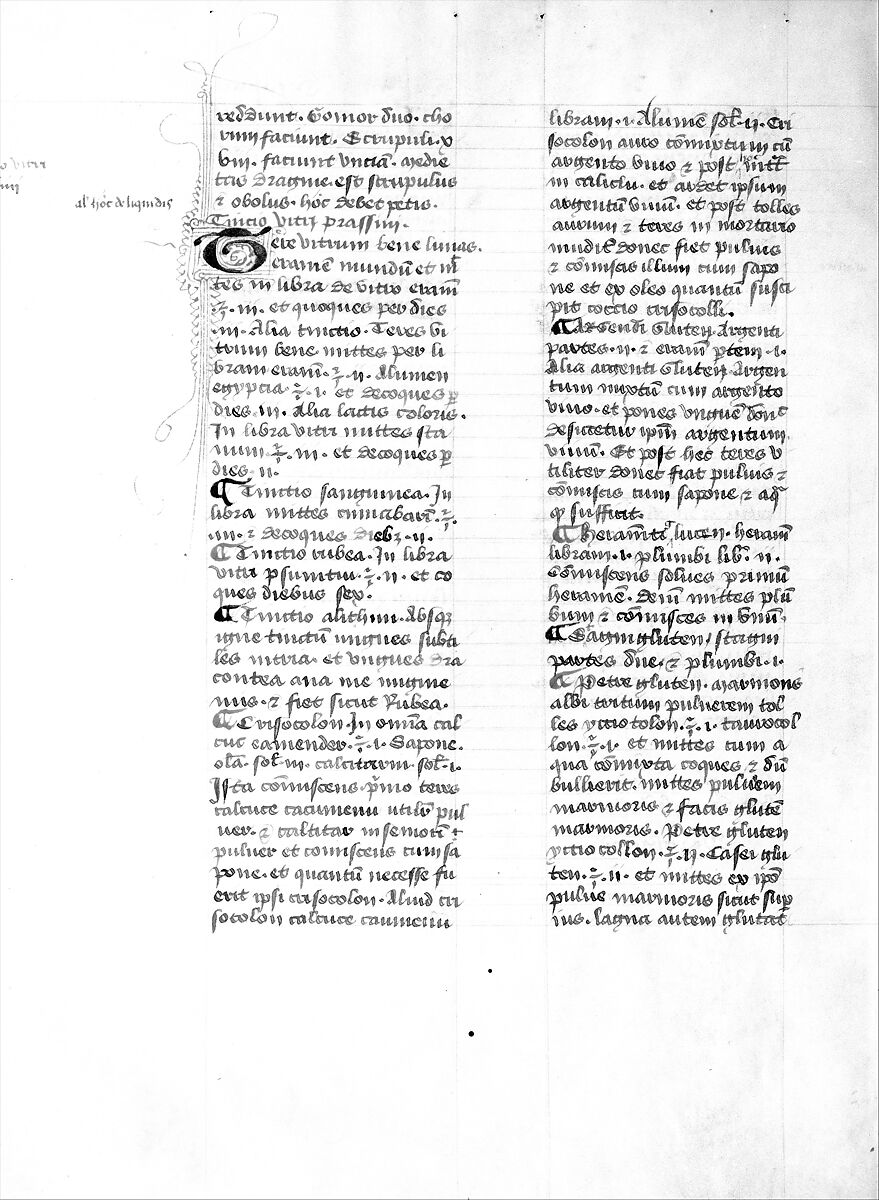 al' hoc de liquidis
reddunt. Gomor duo. cho
rum faciunt. Scrupuli. x
viii. faciunt vnciā. medie
tas dragme. est scrupulus
⁊ obolus. hoc debet petis.
Tinctio vitri prassini.
Tere vitrum bene limas.
eramē mundū et mit
tes in libra de vitro eramē
℥. iii. et quoques per dies
iii. Alia tinctio. Teres vi
trum bene. mittes per li
bram eramē. ℥. ii. Alumen
egyptia ℥. i. et decoques p
dies. iii. Alia lactis coloris.
In libra vitri mittes sta
num ℥. iii. et decoques p
dies. ii.
Tinctio sanguinea. In
libra mittes cinnabarī. ℥.
iii. ⁊ decoques dieb3. ii.
Tinctio rubea. In libra
vitri psimitiu. ℥. ii. et co
ques diebus sex.
Tinctio alithini. Absq3
igne tinctū ungues subti
les vitria. et vngues dra
contea ana me mugine
mus. ⁊ fiet sicut Rubea.
Crisocolon. In omīa cal
cuc eamender. ℥. i. Sapone.
olā. sol. iii. calcitarim. sol. i.
Ista cōmiscens. pmo teres
calcuce cacumenu utilit pul
uer. ⁊ calcitar in semotī t
puluer et comiscens cum sa
pone. et quantū necesse fu
erit ipsi crisocolon. Aliud cri
socolon calcuce caumenu
libram. i. Alumē sol. ii. Cri
socolon auro cōmixtum cū
argento viuo ⁊ post mitt
in caliclu. et ardet ipsum
argentū viuū. et post tolles
aurum ⁊ teres in mortario
mudit donec fiet puluis
⁊ cōmiscis illum cum sapo
ne et ex oleo quantū susci
pit coccio crisocolli.
Argenti gluten. Argenti
partes. ii. ⁊ eramē ptem. i.
Alia argenti gluten. Argen
tum mixtū cum argento
viuo. et pones vnguē donc
desicetur ipm argentum
viuū. Et post hec teres v
tiliter donec fiat puluis ⁊
cōmiscis cum sapone ⁊ aq
q sufficit.
Heramti luten. heramē
libram. i. plumbi lib. ii.
Cōmiscens solues primū
heramē. Deiū mittes plū
bum ⁊ cōmisces in vnū.
Stagni gluten. stagni
partes due. ⁊ plumbi. i.
Petre gluten. marmoris
albi tritum puluerem tol
les yctiotolon. ℥. i. taurocol
lon. ℥. i. et mittes cum a
qua comixta coques ⁊ dū
bullierit. mittes puluem
marmoris ⁊ facis glutē
marmoris. Petre gluten
yctiocollon. ℥. ii. Casei glu
ten. ℥. ii. et mittes ex ipo
puluē marmoris sicut supe
ius. lagna autem glutat